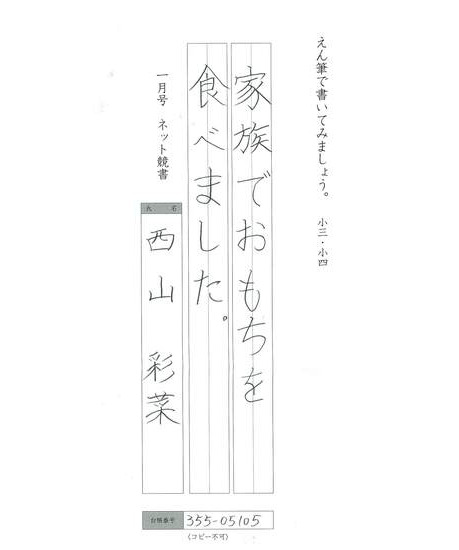 えん筆で書いてみましょう。 小三・小四
家族でおもちを
食べました。
一月号 ネット競書
氏 名
西山 彩菜
台帳番号 355-05105
(コピー不可)